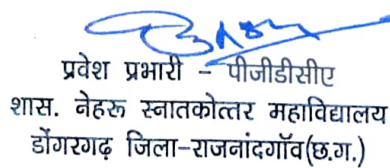 प्रवेश प्रभारी – पीजीडीसीए
शास. नेहरू स्नातकोत्तर महाविद्यालय
डोंगरगढ़ जिला-राजनांदगॉव(छ.ग.)